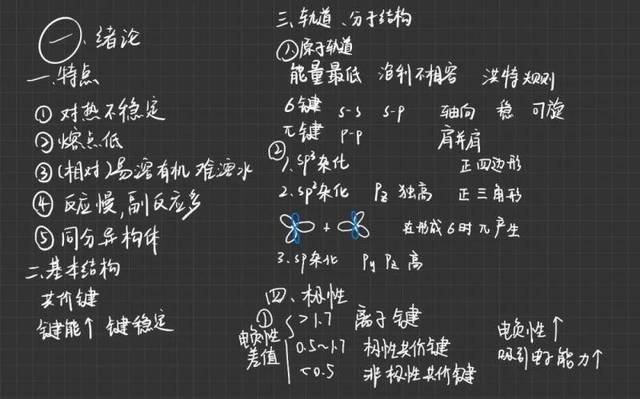 一 绪论
一.特点
① 对热不稳定
② 熔点低
③ (相对)易溶有机 难溶水
④ 反应慢,副反应多
⑤ 同分异构体
二.基本结构
共价键
键能↑ 键稳定
三.轨道、分子结构
①原子轨道
能量最低 泡利不相容 洪特规则
6键 s-s s-p 轴向 稳 可旋
π键 p-p 肩并肩
②
1.sp³杂化 正四边形
2.sp²杂化 Pz 独高 正三角形
+ 在形成6时π产生
3.sp杂化 Py Pz 高
四、极性
① 电负性差值
>1.7 离子键
0.5~1.7 极性共价键
<0.5 非极性共价键
电负性↑
吸引电子能力↑